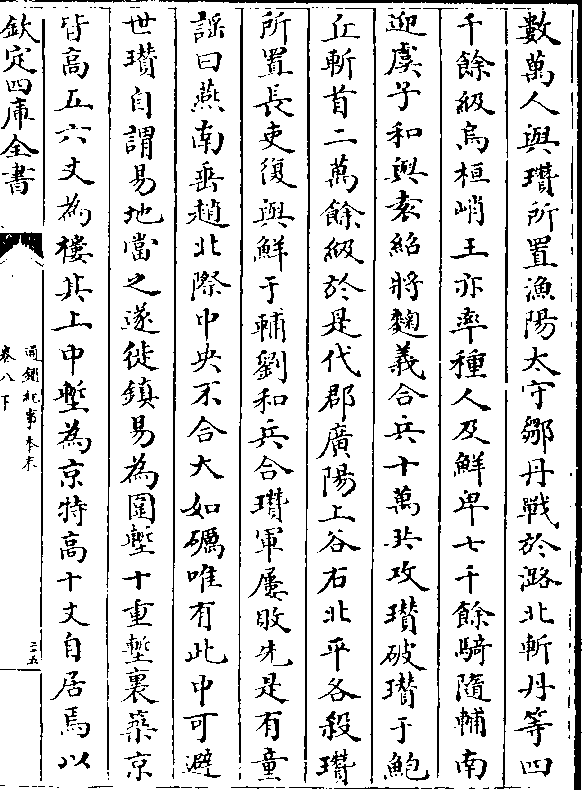 數萬人與瓚所置漁陽太守鄒丹戰於潞北斬丹等四
千餘級烏桓峭王亦率種人及鮮卑七千餘騎隨輔南
迎虞子和與袁紹將麴義合兵十萬共攻瓚破瓚于鮑
丘斬首二萬餘級於是代郡廣陽上谷右北平各殺瓚
所置長吏復與鮮于輔劉和兵合瓚軍屢敗先是有童
謡曰燕南垂趙北際中央不合大如礪唯有此中可避
世瓚自謂易地當之遂徙鎮易為圍塹十重塹裏築京
皆高五六丈為樓其上中塹為京特高十丈自居焉以
欽定四庫全書
通鑑紀事本末
卷八下
二五